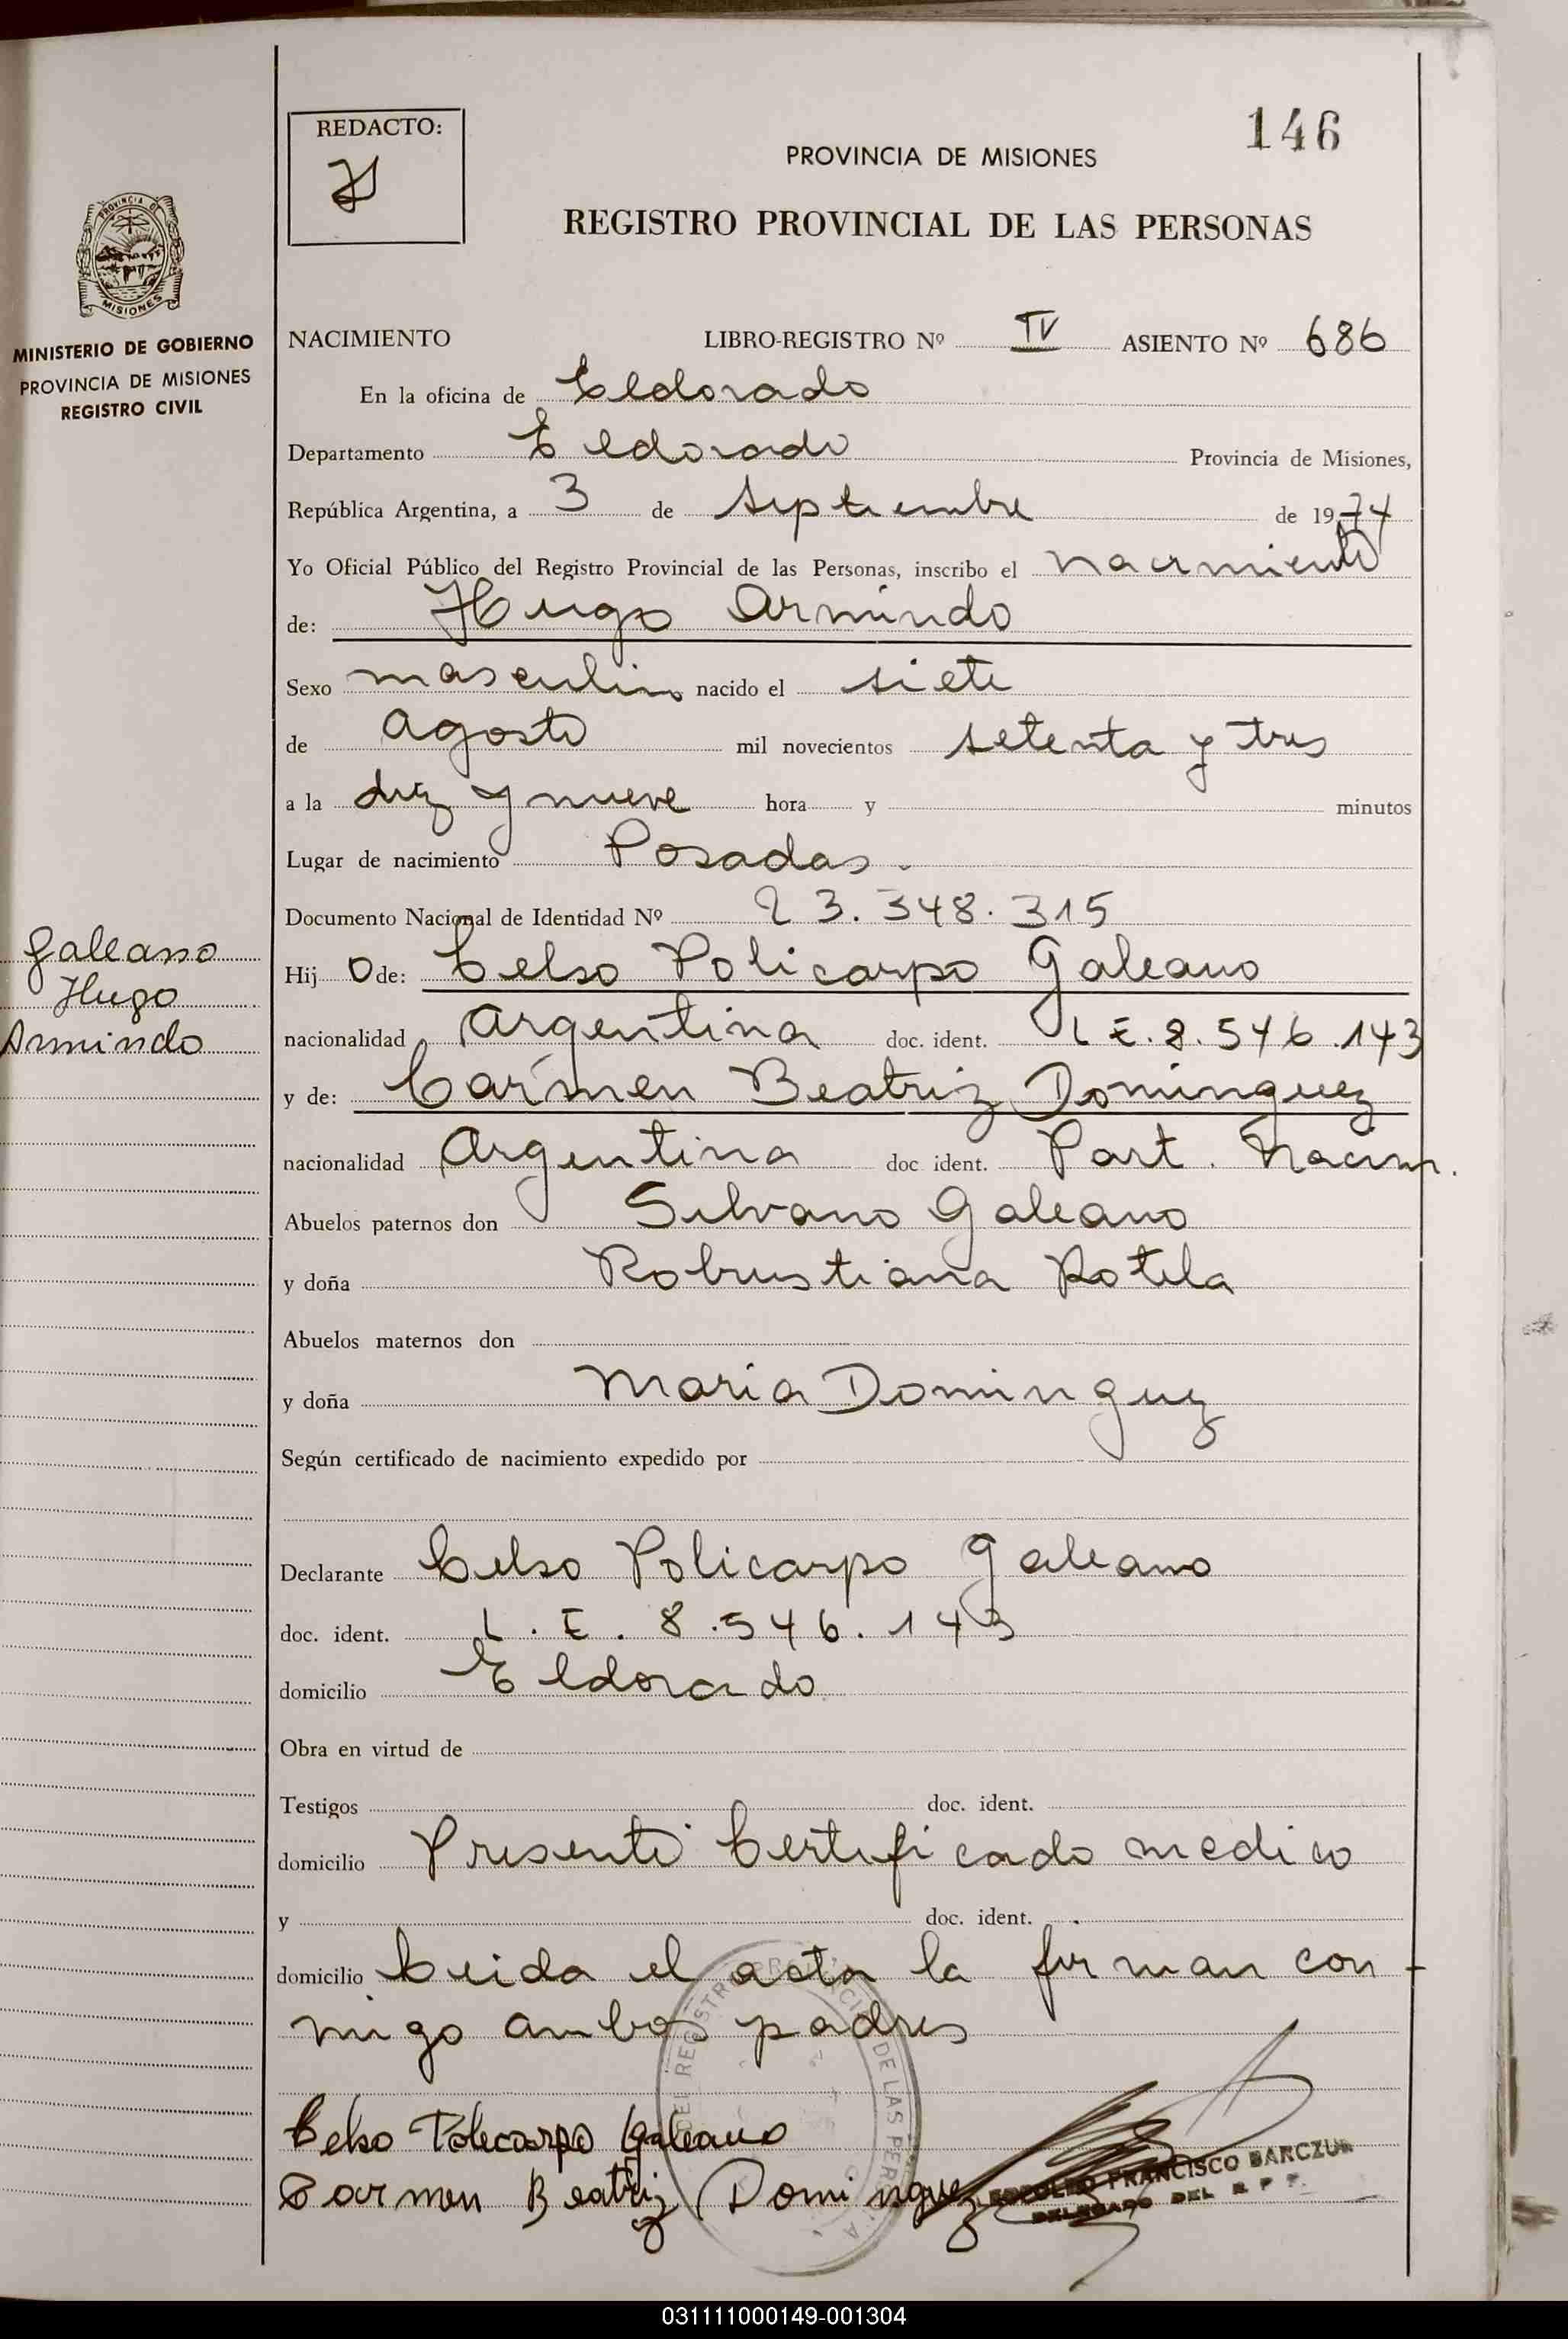 146
REDACTO:
PROVINCIA DE MISIONES
REGISTRO PROVINCIAL DE LAS PERSONAS
PROVINCIA DE
MISIONES
MINISTERIO DE GOBIERNO
PROVINCIA DE MISIONES
REGISTRO CIVIL
NACIMIENTO LIBRO-REGISTRO Nº IV ASIENTO Nº 686
En la oficina de Eldorado
Departamento Eldorado Provincia de Misiones,
República Argentina, a 3 de Septiembre de 1974
Yo Oficial Público del Registro Provincial de las Personas, inscribo el nacimiento
de: Hugo Armindo
Sexo masculino nacido el siete
de agosto mil novecientos setenta y tres
a la diez y nueve hora y minutos
Lugar de nacimiento Posadas.
Documento Nacional de Identidad Nº 23.348.315
Galeano
Hugo
Armindo
Hij o de: Celso Policarpo Galeano
nacionalidad Argentina doc. ident. L E. 8.546.143
y de: Carmen Beatriz Dominguez
nacionalidad Argentina doc ident. Part. Nacim.
Abuelos paternos don Silvano Galeano
y doña Robustiana Rotela
Abuelos maternos don
y doña Maria Dominguez
Según certificado de nacimiento expedido por
Declarante Celso Policarpo Galeano
doc. ident. L. E. 8.546.143
domicilio Eldorado
Obra en virtud de
Testigos doc. ident.
domicilio Presentó Certificado medico
y doc. ident.
domicilio Leida el acta la firman con-
migo ambos padres
Celso Policarpo Galeano
Carmen Beatriz Dominguez
RODOLFO FRANCISCO BARCZUK
DELEGADO DEL R P P
031111000149-001304